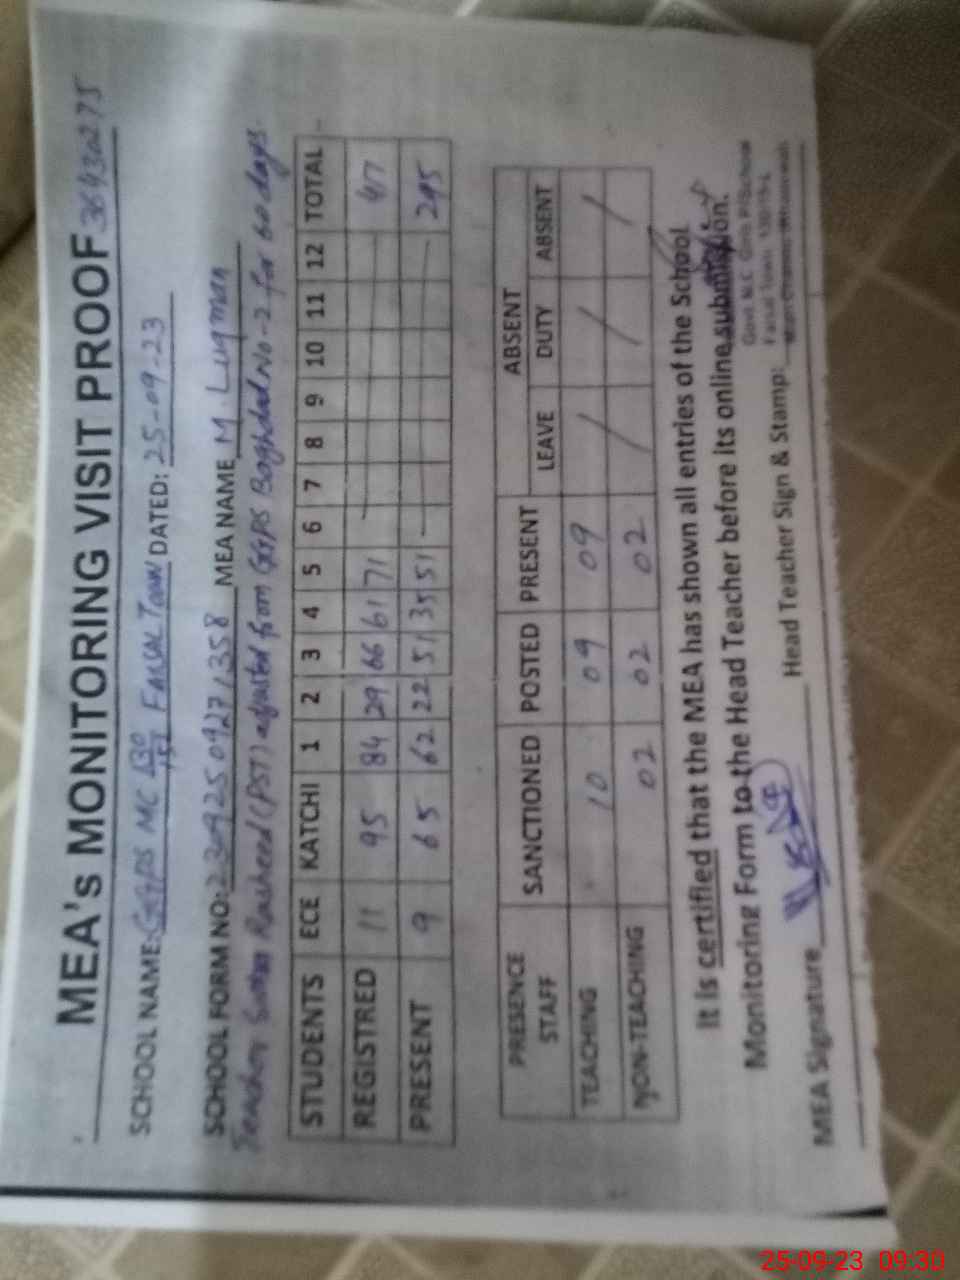 MEA's MONITORING VISIT PROOF 36430275
SCHOOL NAME: GGPS MC 130/15L FAISAL TOWN DATED: 25-09-23
SCHOOL FORM NO: 23092509271358 MEA NAME M. Luqman
Teacher Rasheed (PST) adjusted from GGPS Baghdad No-2 for 60 days.
STUDENTS ECE KATCHI 1 2 3 4 5 6 7 8 9 10 11 12 TOTAL
REGISTRED 11 95 84 29 66 61 71 417
PRESENT 9 65 62 22 51 35 51 295
PRESENCE STAFF SANCTIONED POSTED PRESENT ABSENT
LEAVE DUTY ABSENT
TEACHING 10 09 09 / / /
NON-TEACHING 02 02 02 / / /
It is certified that the MEA has shown all entries of the School
Monitoring Form to the Head Teacher before its online submission.
Govt. M.C. Girls P/School
Faisal Town 130/15-L
MEA Signature Head Teacher Sign & Stamp:
25-09-23 09:30